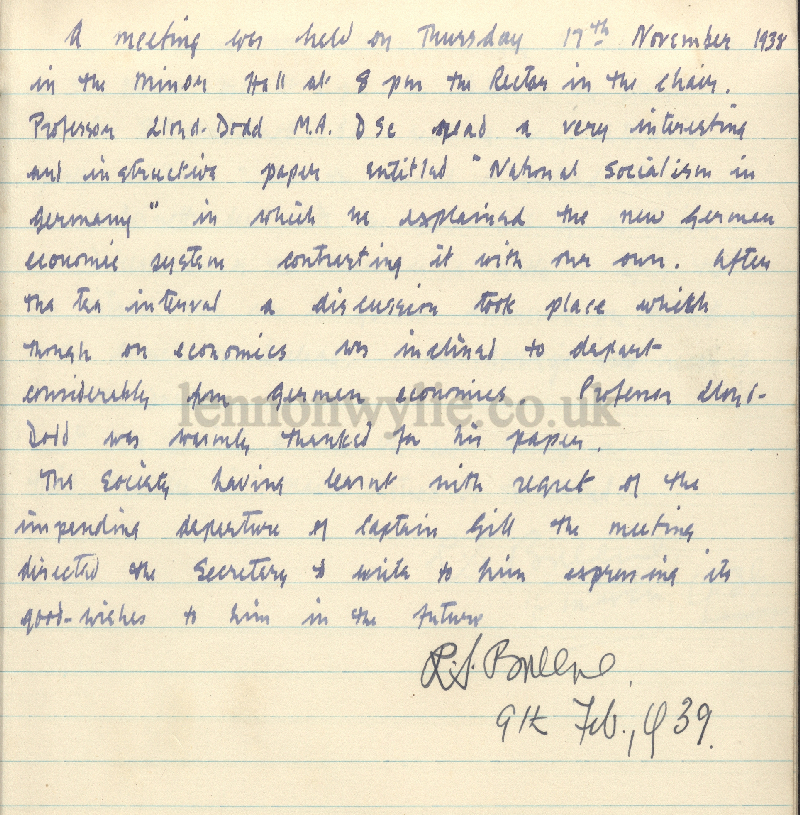 A meeting was held on Thursday 17th November 1938
in the Minor Hall at 8 pm the Rector in the chair.
Professor Lloyd-Dodd M.A. DSc read a very interesting
and instructive paper entitled "National Socialism in
Germany" in which he explained the new German
economic system contrasting it with our own. After
the tea interval a discussion took place which
though on economics was inclined to depart
considerably from German economics. Professor Lloyd-
Dodd was warmly thanked for his paper.
The Society having learnt with regret of the
impending departure of Captain Gill the meeting
directed the Secretary to write to him expressing its
good-wishes to him in the future
R.S. Breene.
9th Feb., 1939.
lennonwylie.co.uk